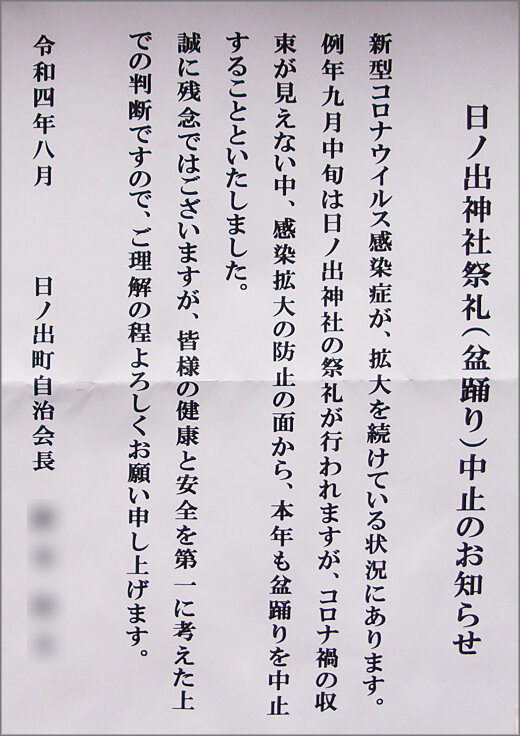 日ノ出神社祭礼(盆踊り)中止のお知らせ
新型コロナウイルス感染症が、拡大を続けている状況にあります。
例年九月中旬は日ノ出神社の祭礼が行われますが、コロナ禍の収
束が見えない中、感染拡大の防止の面から、本年も盆踊りを中止
することといたしました。
誠に残念ではございますが、皆様の健康と安全を第一に考えた上
での判断ですので、ご理解の程よろしくお願い申し上げます。
令和四年八月 日ノ出町自治会長